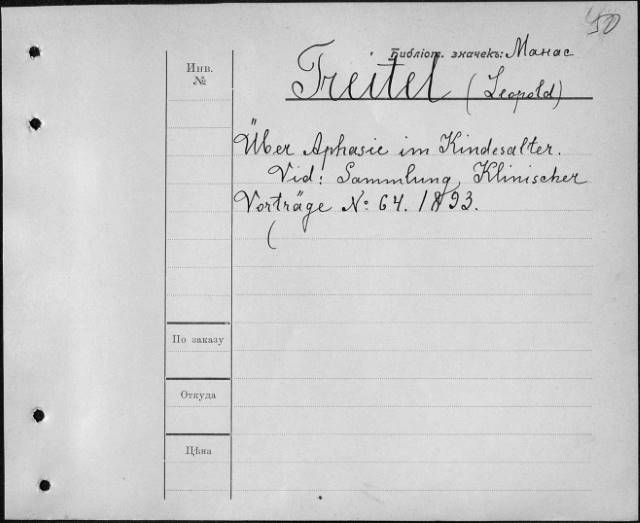 50
Библіот. значекъ: Манас
Инв.
№
Treitel (Leopold)
Über Aphasie im Kindesalter.
Vid: Sammlung Klinischer
Vorträge No. 64. 1893.
(
По заказу
Откуда
Цѣна